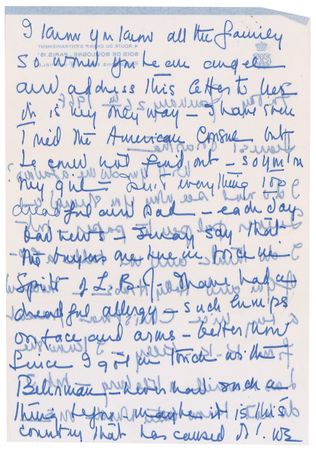 I know you know all the family
so would you be an angel
and address this letter to her
it is my only way - I have even
tried the American Consul but
he could not find out - so you're in
my girl - Isn't everything too
dreadful and sad - each day
bad news - They say that
the buyers are here in with the
Spirit of L.B.J. I have had a
dreadful allergy - such bumps
on face and arms - better now
since I got in touch with
Behrman - never had such a
thing before maybe it is this
country that has caused it! We